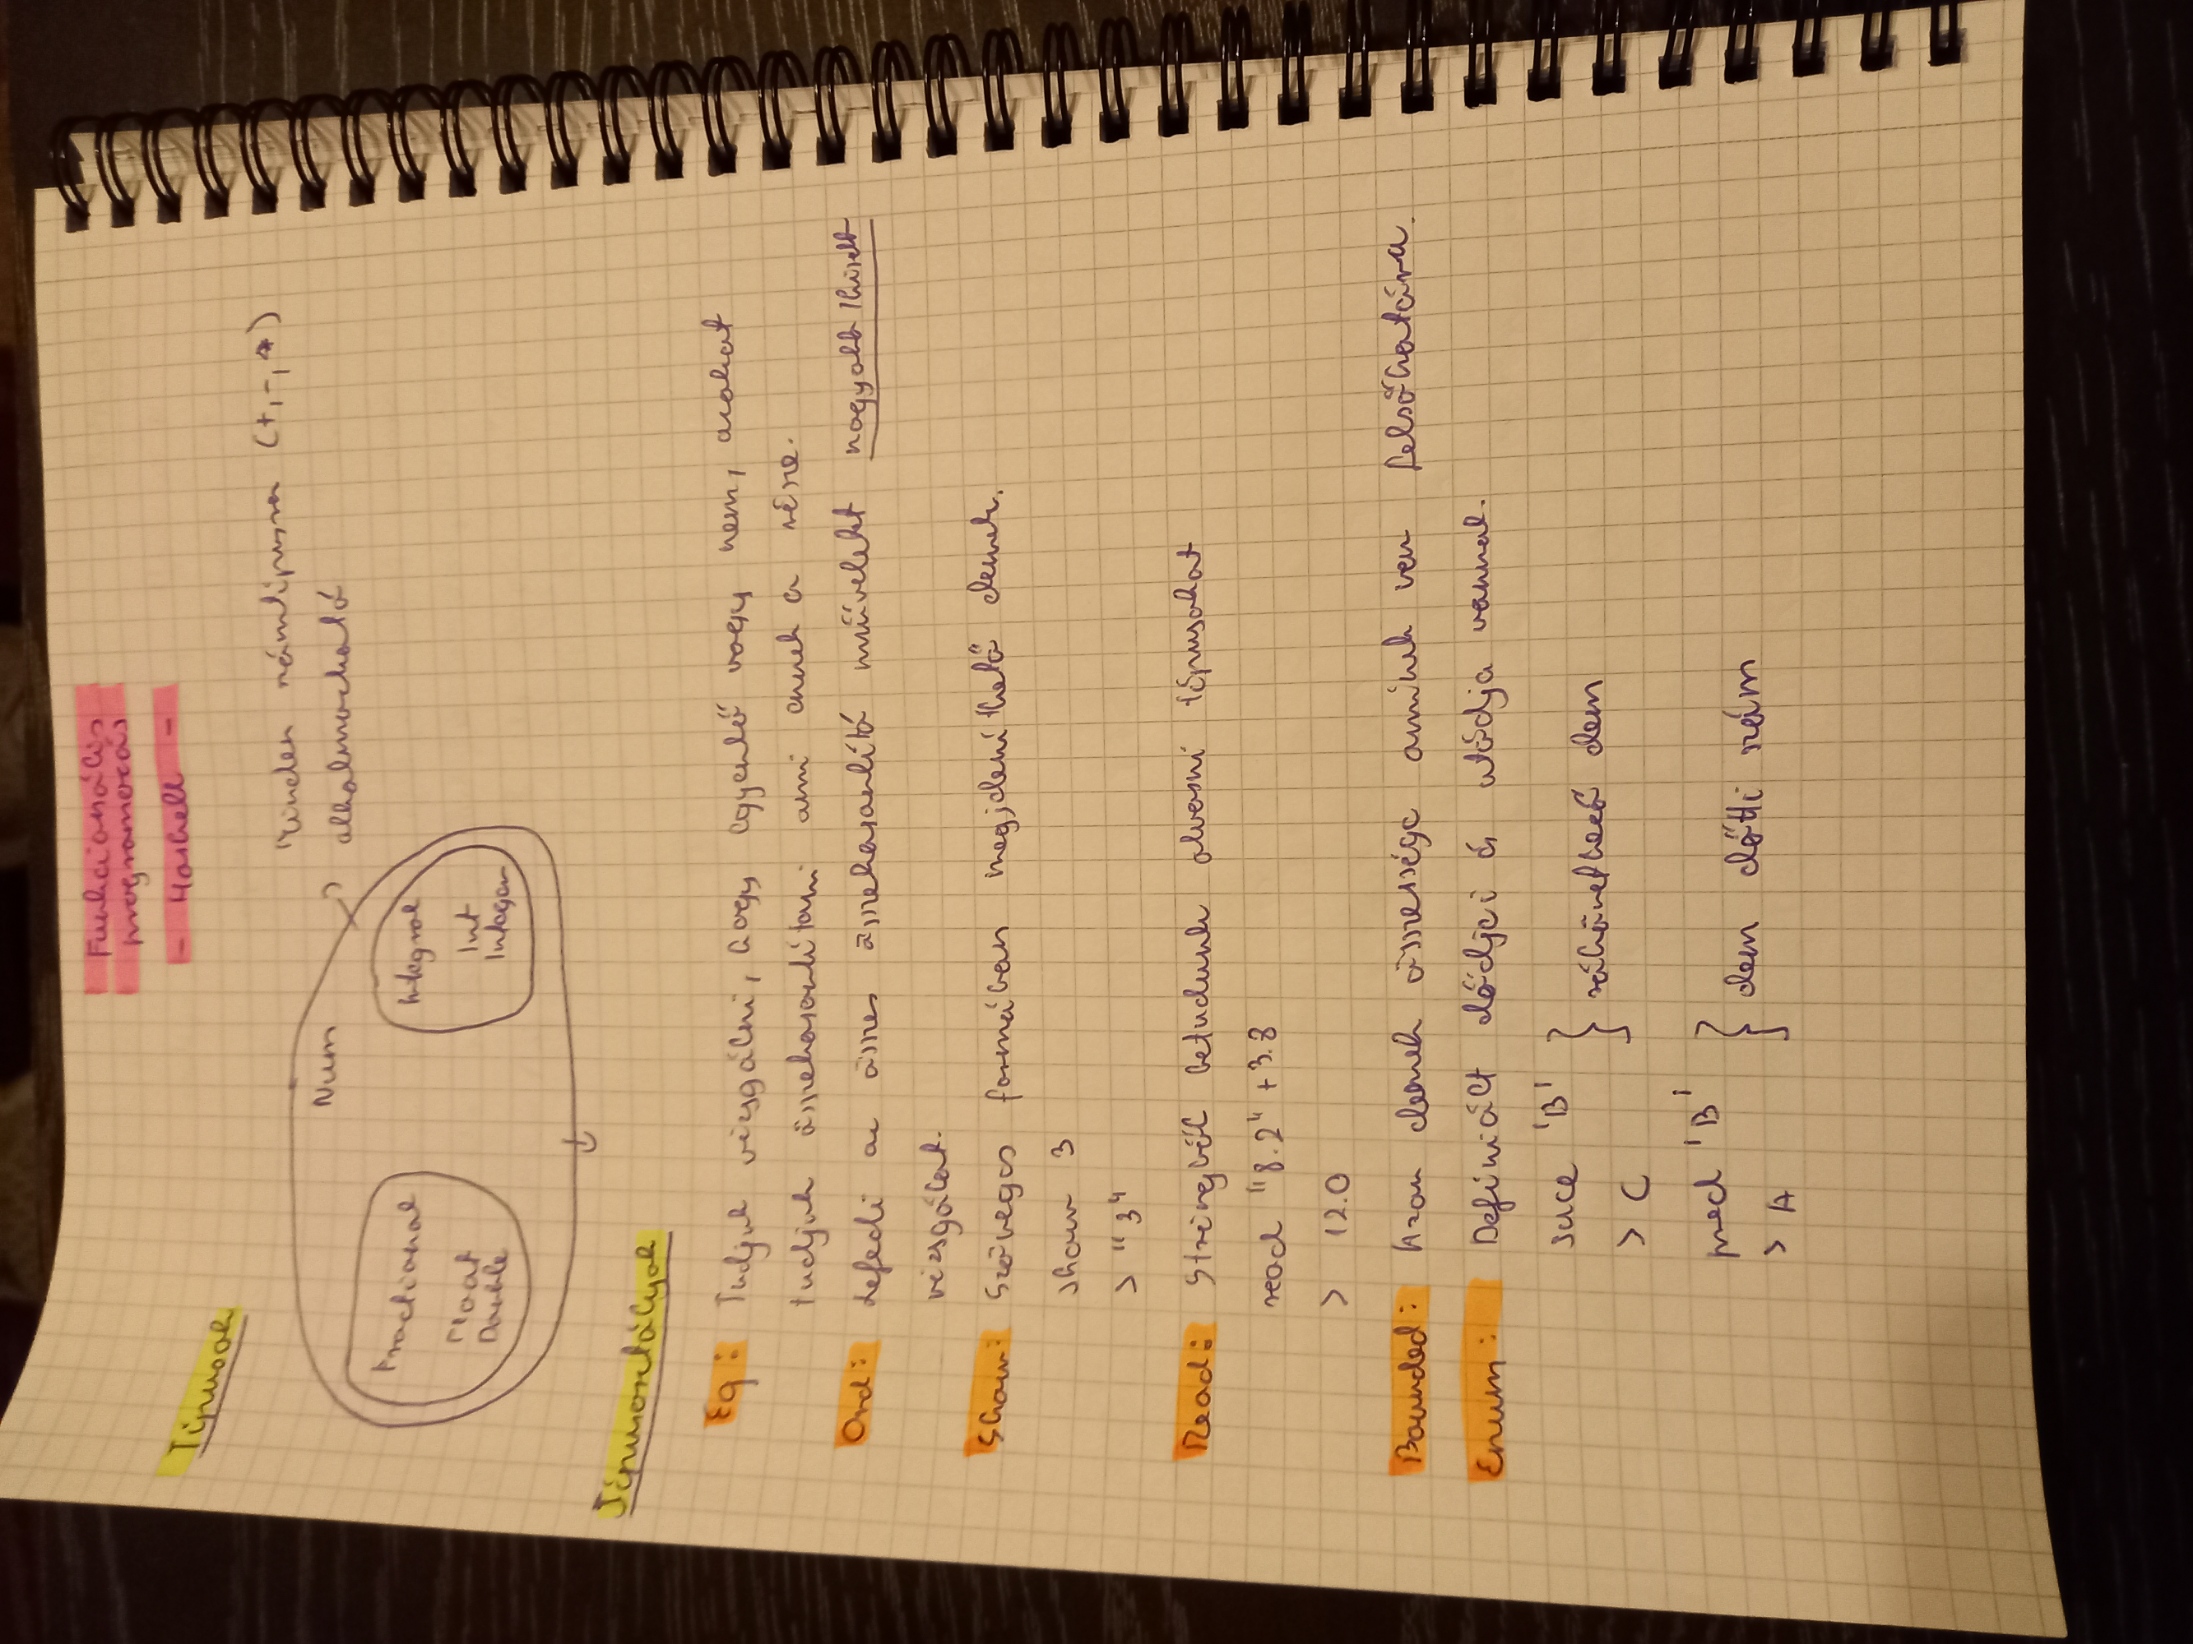 Funkcionális
programozás
- Haskell -
Típusok
Minden számtípusra (+,-,*)
alkalmazható
Num
Fractional
Float
Double
Integral
Int
Integer
Típusosztályok
Eq: Tudjuk vizsgálni, hogy egyenlő vagy nem, azokat
tudjuk összehasonlítani ami ennek a része.
Ord: Lefedi az összes összehasonlító műveletet nagyobb/kisebb
vizsgálat.
Show: Szöveges formában megjeleníthető elemek.
show 3
> "3"
Read: Stringből betudunk olvasni típusokat
read "8.2" + 3.8
> 12.0
Bounded: Azon elemek összessége aminek van felsőhatára.
Enum: Definiált elődjei és utódja vannak.
succ 'B'
> C
rákövetkező elem
pred 'B'
> A
elem előtti szám